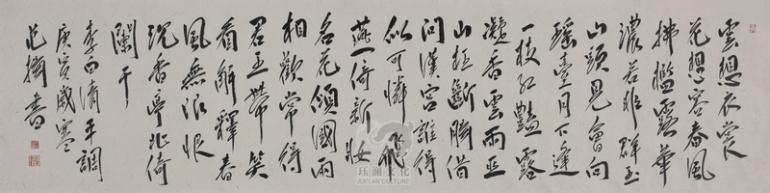 雲想衣裳
花想容春風
拂檻露華
濃若非群玉
山頭見會向
瑶臺月下逢
一枝紅豔露
凝香雲雨巫
山枉斷腸借
問漢宮誰得
似可憐飛
燕倚新妝
名花傾國兩
相歡常得
君王帶笑
看解釋春
風無限恨
沉香亭北倚
闌干
李白清平調
庚寅歲寒
書
珏澜文化
JUELAN CULTURE